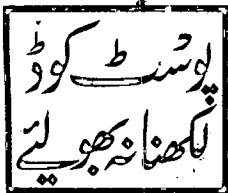 پوسٹ کوڈ
لکھنا نہ بھولئے